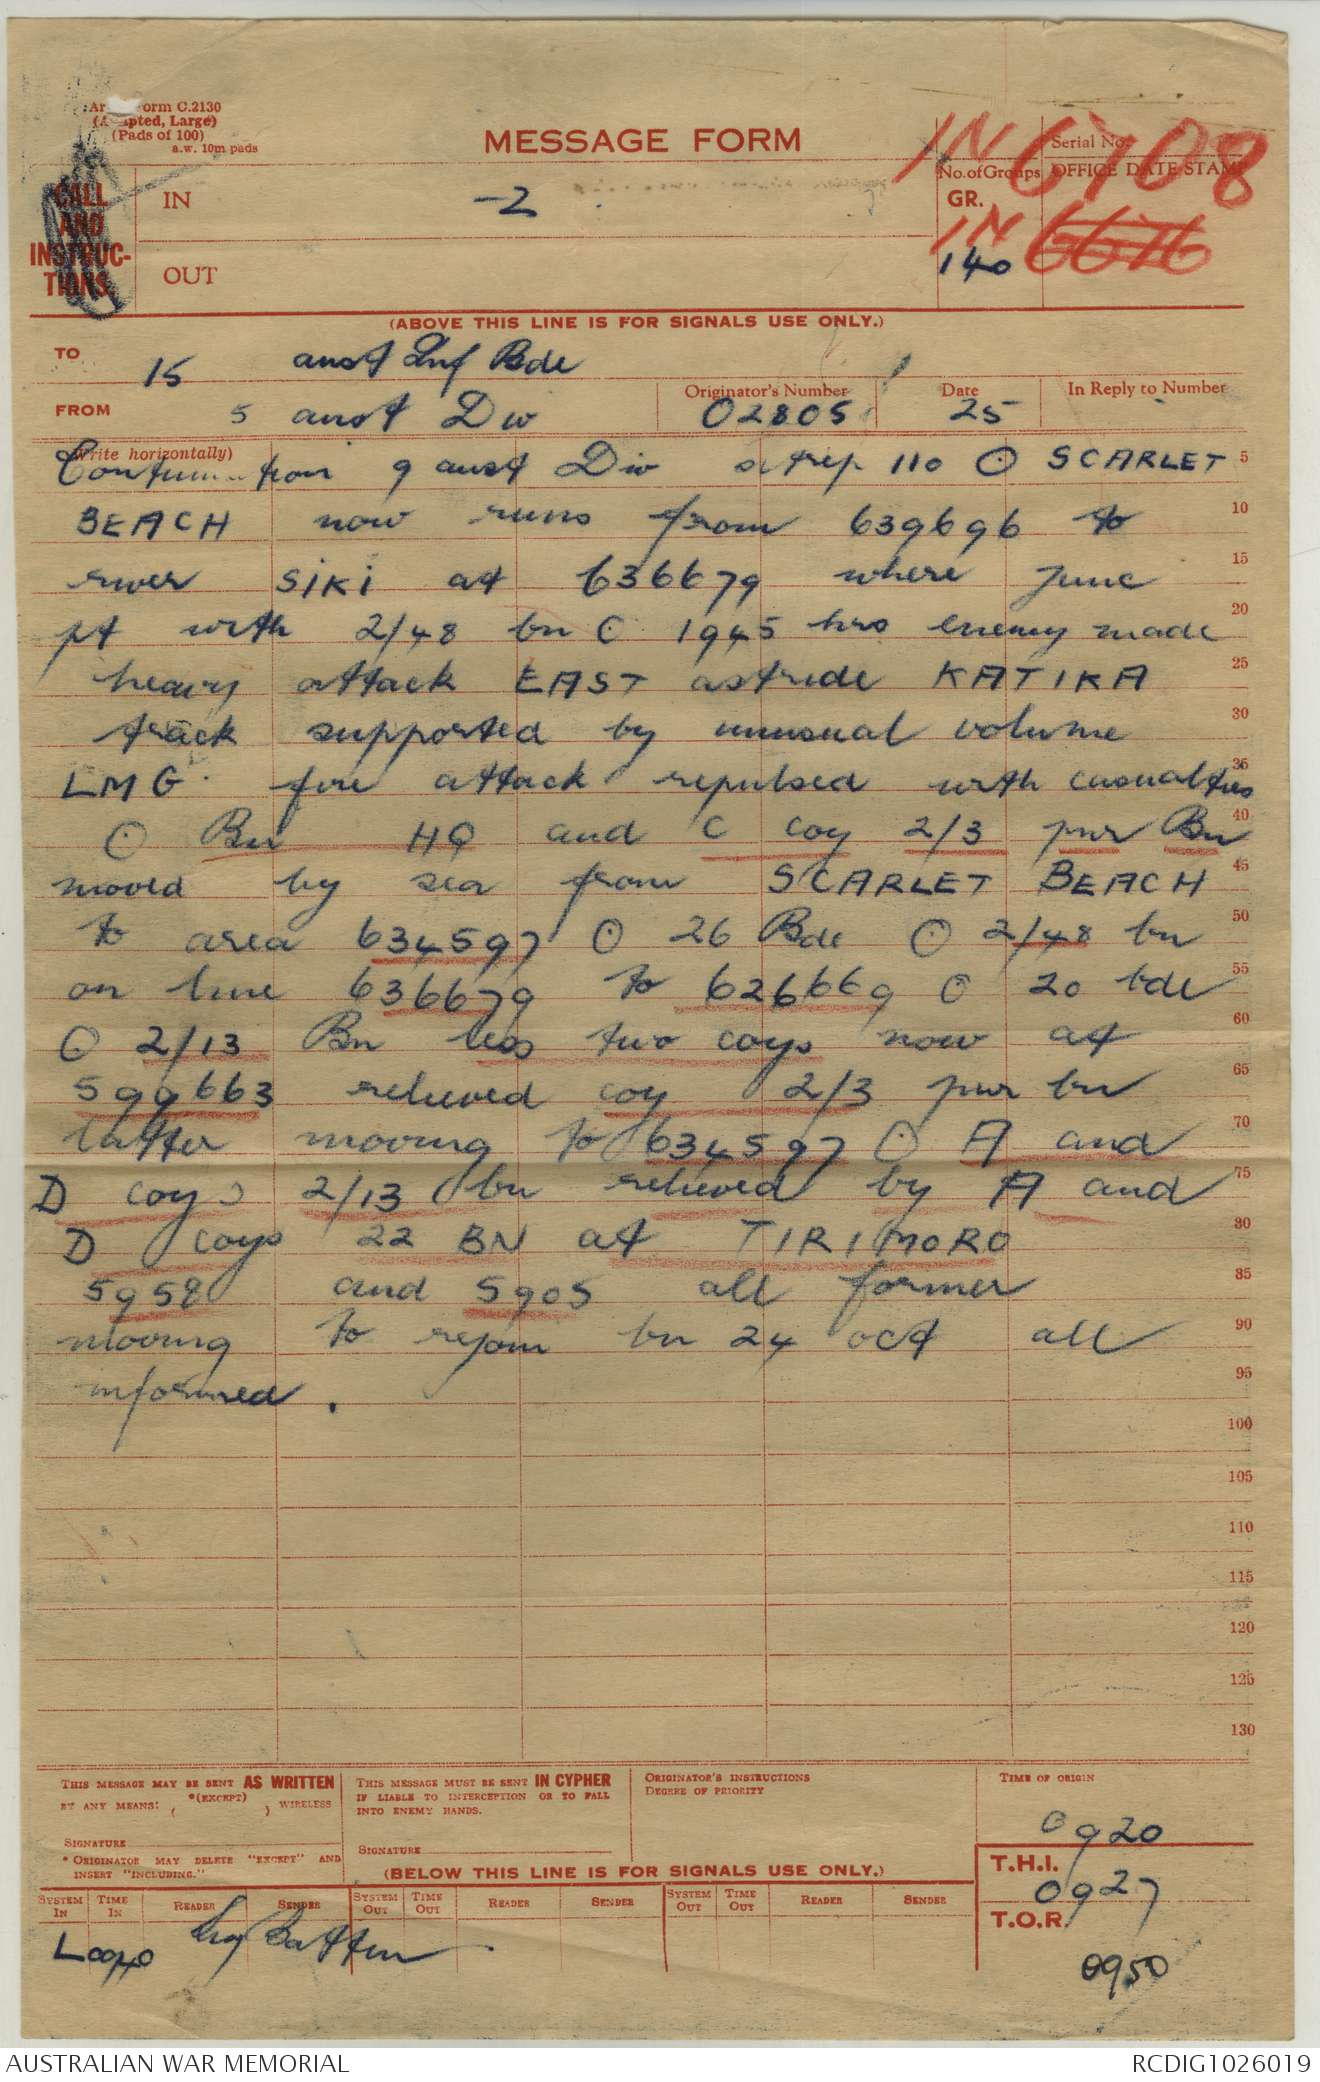 Army Form C.2130
(Adapted, Large)
(Pads of 100)
a.w. 10m pads
MESSAGE FORM
Serial No.
IN 6708
CALL AND INSTRUC-TIONS
IN
-2
No. of Groups
GR.
OFFICE DATE STAMP
OUT
140
IN 6676
(ABOVE THIS LINE IS FOR SIGNALS USE ONLY.)
TO 15 aust Inf Bde
FROM 5 aust Div
Originator's Number
02805
Date
25
In Reply to Number
(Write horizontally)
Continuation 9 aust Div sitrep 110 ⊙ SCARLET 5
BEACH now runs from 639696 to 10
river SIKI at 636679 where junc 15
pt with 2/48 bn ⊙ 1945 hrs enemy made 20
heavy attack EAST astride KATIKA 25
track supported by unusual volume 30
LMG fire attack repulsed with casualties 35
⊙ Bn HQ and C coy 2/3 pnr Bn 40
moved by sea from SCARLET BEACH 45
to area 634597 ⊙ 26 Bde ⊙ 2/48 bn 50
on line 636679 to 626669 ⊙ 20 bde 55
⊙ 2/13 Bn less two coys now at 60
599663 relieved coy 2/3 pnr bn 65
latter moving to 634597 ⊙ A and 70
D coys 2/13 bn relieved by A and 75
D coys 22 BN at TIRIMORO 80
5958 and 5905 all former 85
moving to rejoin bn 24 oct all 90
informed. 95
100
105
110
115
120
125
130
THIS MESSAGE MAY BE SENT AS WRITTEN
BY ANY MEANS: *(EXCEPT) ( ) WIRELESS
SIGNATURE
* ORIGINATOR MAY DELETE "EXCEPT" AND
INSERT "INCLUDING."
THIS MESSAGE MUST BE SENT IN CYPHER
IF LIABLE TO INTERCEPTION OR TO FALL
INTO ENEMY HANDS.
SIGNATURE
ORIGINATOR'S INSTRUCTIONS
DEGREE OF PRIORITY
TIME OF ORIGIN
0920
(BELOW THIS LINE IS FOR SIGNALS USE ONLY.)
T.H.I.
0927
T.O.R.
0950
SYSTEM IN TIME IN READER SENDER SYSTEM OUT TIME OUT READER SENDER SYSTEM OUT TIME OUT READER SENDER
AUSTRALIAN WAR MEMORIAL
RCDIG1026019